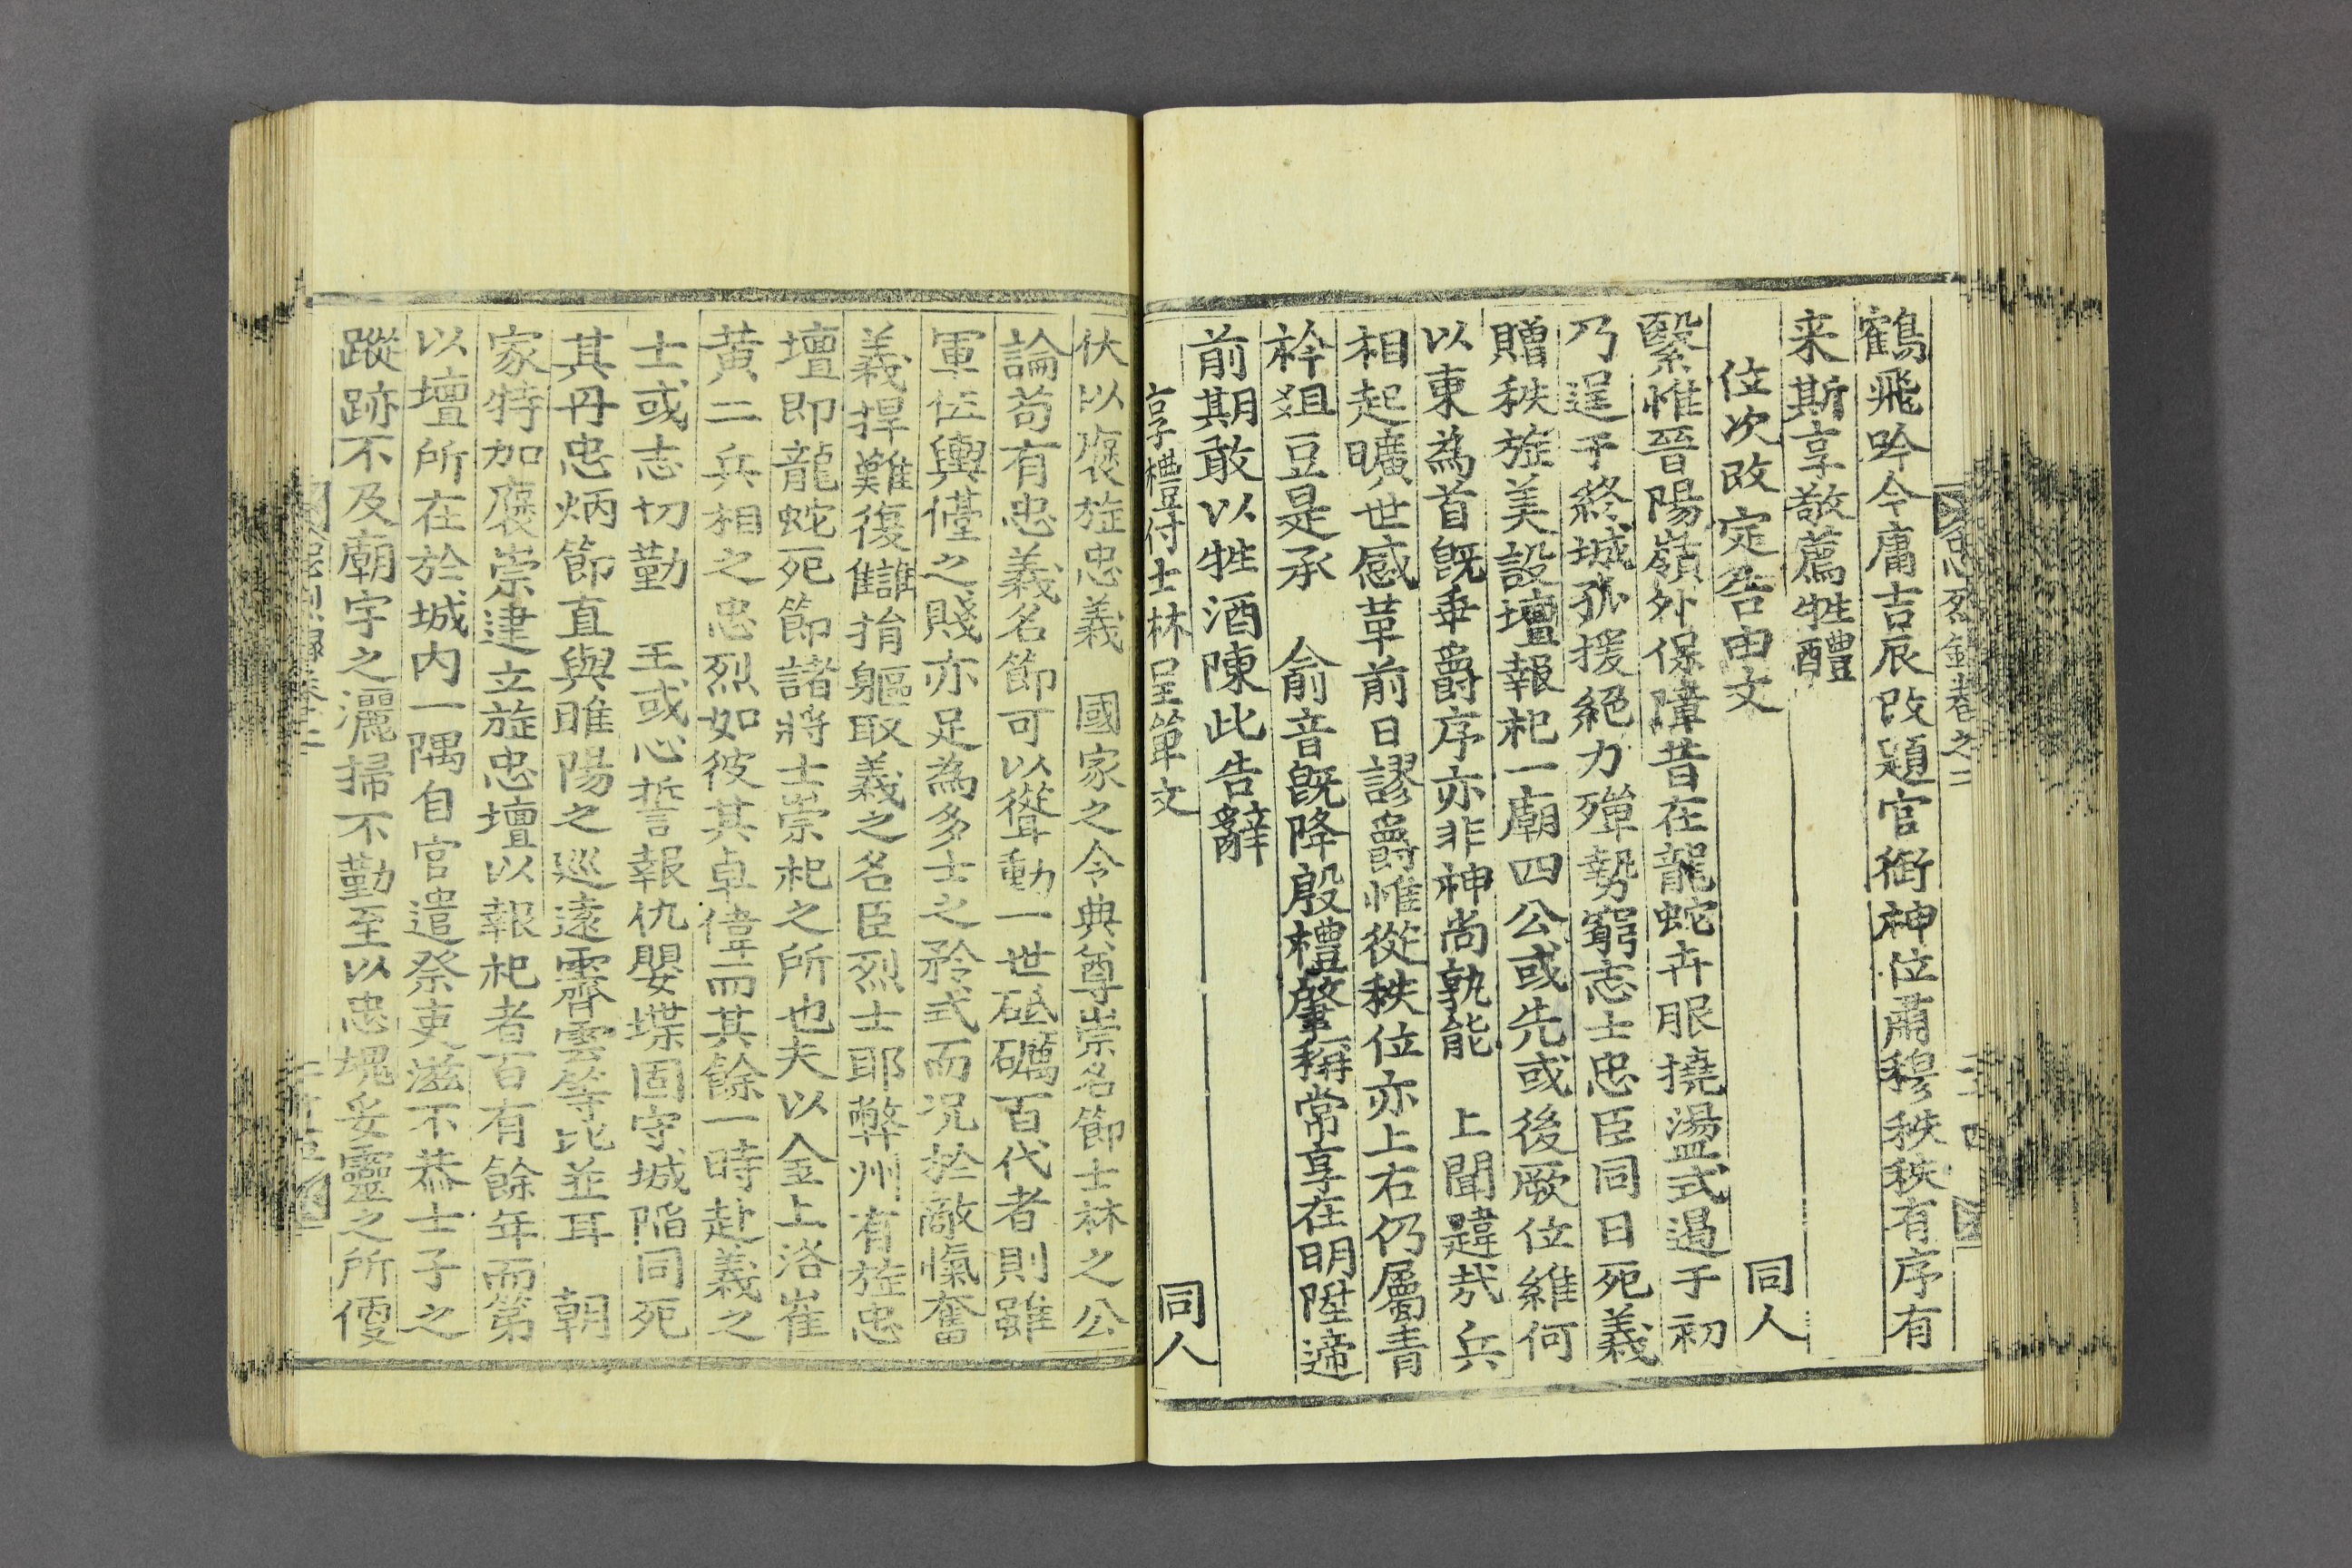 忠烈錄卷之二
鶴飛吟今庸吉辰改題官銜神位肅穆秩秩有序有
来斯享敬薦牲醴
位次改定告由文 同人
繄惟晉陽嶺外保障昔在龍蛇卉服撓盪式遏于初
乃逞于終城孤援絕力殫勢窮志士忠臣同日死義
贈秩旌美設壇報祀一廟四公或先或後厥位維何
以東為首旣垂爵序亦非神尚孰能 上聞韙㢤兵
相起曠世感革前日謬爵惟從秩位亦上右仍屬青
衿爼豆是承 俞音旣降殷禮肇稱常享在明陞遆
前期敢以牲酒陳此告辭
享禮付士林呈單文 同人
伏以褒旌忠義 國家之令典尊崇名節士林之公
論苟有忠義名節可以聳動一世砥礪百代者則雖
軍伍輿儓之賤亦足為多士之矜式而况於敵愾奮
義捍難復讎捐軀取義之名臣烈士耶弊州有旌忠
壇即龍蛇死節諸將士崇祀之所也夫以金上洛崔
黃二兵相之忠烈如彼其卓偉而其餘一時赴義之
士或志切勤 王或心誓報仇嬰堞固守城陷同死
其丹忠炳節直與睢陽之巡遠霽雲等比並耳 朝
家特加褒崇建立旌忠壇以報祀者百有餘年而第
以壇所在於城內一隅自官遣祭吏滋不恭士子之
蹤跡不及廟宇之灑掃不勤至以忠塊妥靈之所便